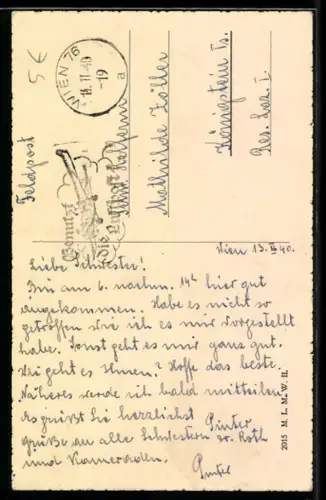 5€
Feldpost
WIEN 76
13.II.40
-19
a
Benutzt
die Luftpost
Mathilde Zöller
Königstein Ts.
Res. Laz. I.
Wien 13.II.40.
Liebe Schwester!
Bin am 6. nachm. 14h hier gut
angekommen. Habe es nicht so
getroffen wie ich es mir vorgestellt
habe. Sonst geht es mir ganz gut.
Wie geht es Ihnen? Hoffe das beste.
Näheres werde ich bald mitteilen
Es grüßt Sie herzlichst
Pinter
Grüße an alle Schwestern Dr. Roth
und Kameraden.
Pinter
2015 M. L. M. W. II.